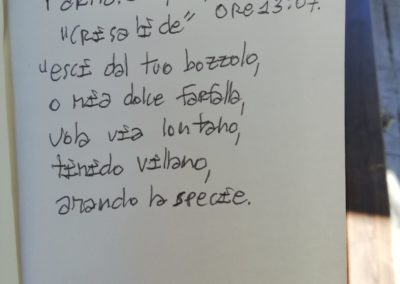 ORE 13:07.
"CRisalide"
"esci dal tuo bozzolo,
o mia dolce farfalla,
vola via lontano,
timido villano,
amando la specie.